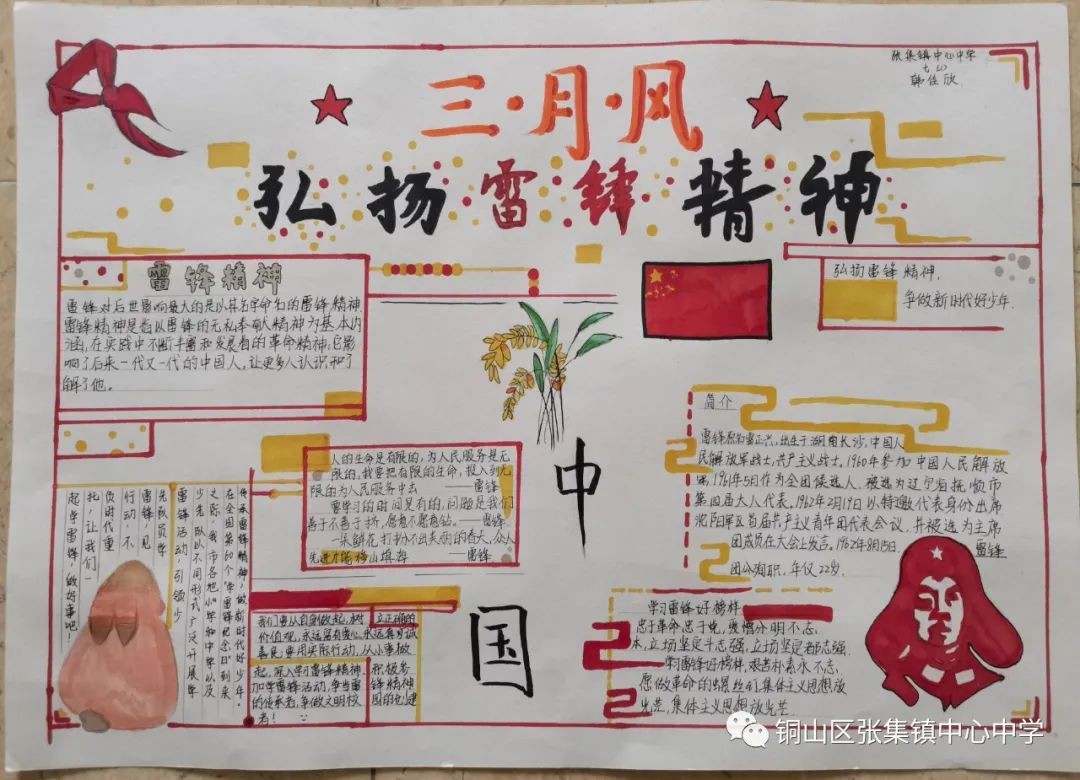 张集镇中心中学
韩佳欣
三·月·风
弘扬雷锋精神
雷锋精神
雷锋对后世影响最大的是以其名字命名的雷锋精神
雷锋精神是指以雷锋的无私奉献精神为基本内
涵,在实践中不断丰富和发展着的革命精神,它影
响了后来一代又一代的中国人,让更多人认识和了
解了他。
弘扬雷锋精神,
争做新时代好少年.
人的生命是有限的,为人民服务是无
限的,我要把有限的生命,投入到无
限的为人民服务中去 ——雷锋
雷学习的时间是有的,问题是我们
善于不善于挤,愿意不愿意钻。——雷锋
一朵鲜花打扮不出美丽的春天,众人
先进才能移山填海 ——雷锋
中
国
简介
雷锋原名雷正兴,出生于湖南长沙,中国人
民解放军战士,共产主义战士,1960年参加中国人民解放
军,1961年5月作为全团候选人,被选为辽宁省抚顺市
第四届人大代表。1962年2月19日以特邀代表身份出席
沈阳军区首届共产主义青年团代表会议,并被选为主席
团成员在大会上发言。1962年8月15日,雷锋
因公殉职,年仅22岁.
传承雷锋精神,做新时代好少年。
在全国第60个“学雷锋纪念日”到来
之际,我市各地小学和中学以及
少先队以不同形式广泛开展学
雷锋活动,引领少
先队员学
雷锋见
行动不
负时代重
托,让我们一
起学雷锋,做好事吧!
我们要从自身做起,树立正确的
价值观,永远富有爱心,永远真对诚
善良,要用实际行动,从小事做
起,深入学习雷锋精神,积极参
加学雷锋活动,争当雷锋精神
的传承者,争做文明校园的创建
者!
学习雷锋好榜样
忠于革命忠于党,爱憎分明不忘
本,立场坚定斗志强,立场坚定斗志强.
学习雷锋好榜样,艰苦朴素永不忘,
愿做革命的螺丝钉,集体主义思想放
光芒,集体主义思想放光芒.
铜山区张集镇中心中学